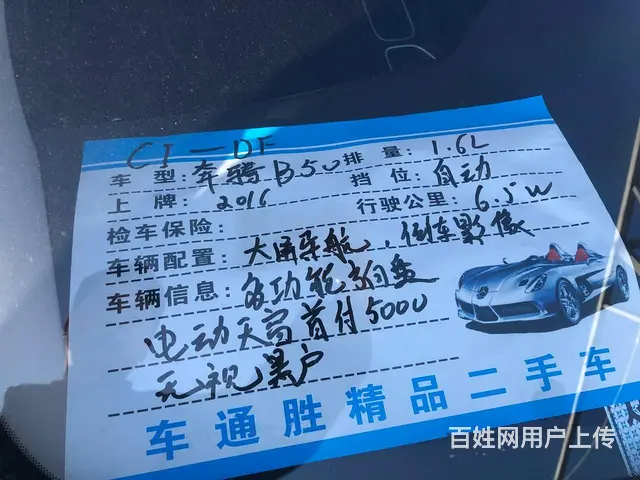 CI-DF
车 型: 奔腾B50 排 量: 1.6L
上 牌: 2016 挡 位: 自动
检车保险: 行驶公里: 6.5W
车辆配置: 大屏导航, 倒车影像
车辆信息: 多功能方向盘
电动天窗首付5000
无视黑户
车通胜精品二手车
百姓网用户上传